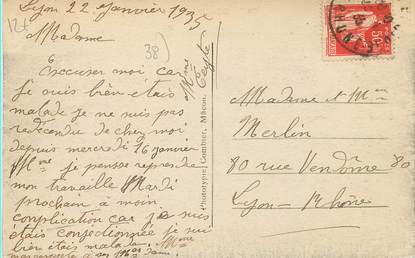 Lyon 22 Janvier 1935
12f
Madame
38)
Excuser moi car
je suis bien étais
malade je ne suis pas
redecendu de chez moi
depuis mercredi 16 janvier
Mme je pense reprendre
mon travaille Mardi
prochem à moin
complication car je suis
étais conjectionnée je sui
bien étais malade. Mme
Mme Teyte
Phototypie Combier, Mâcon.
50c
RHONE
Madame et Mme
Merlin
80 rue Vendôme 80
Lyon - Rhône